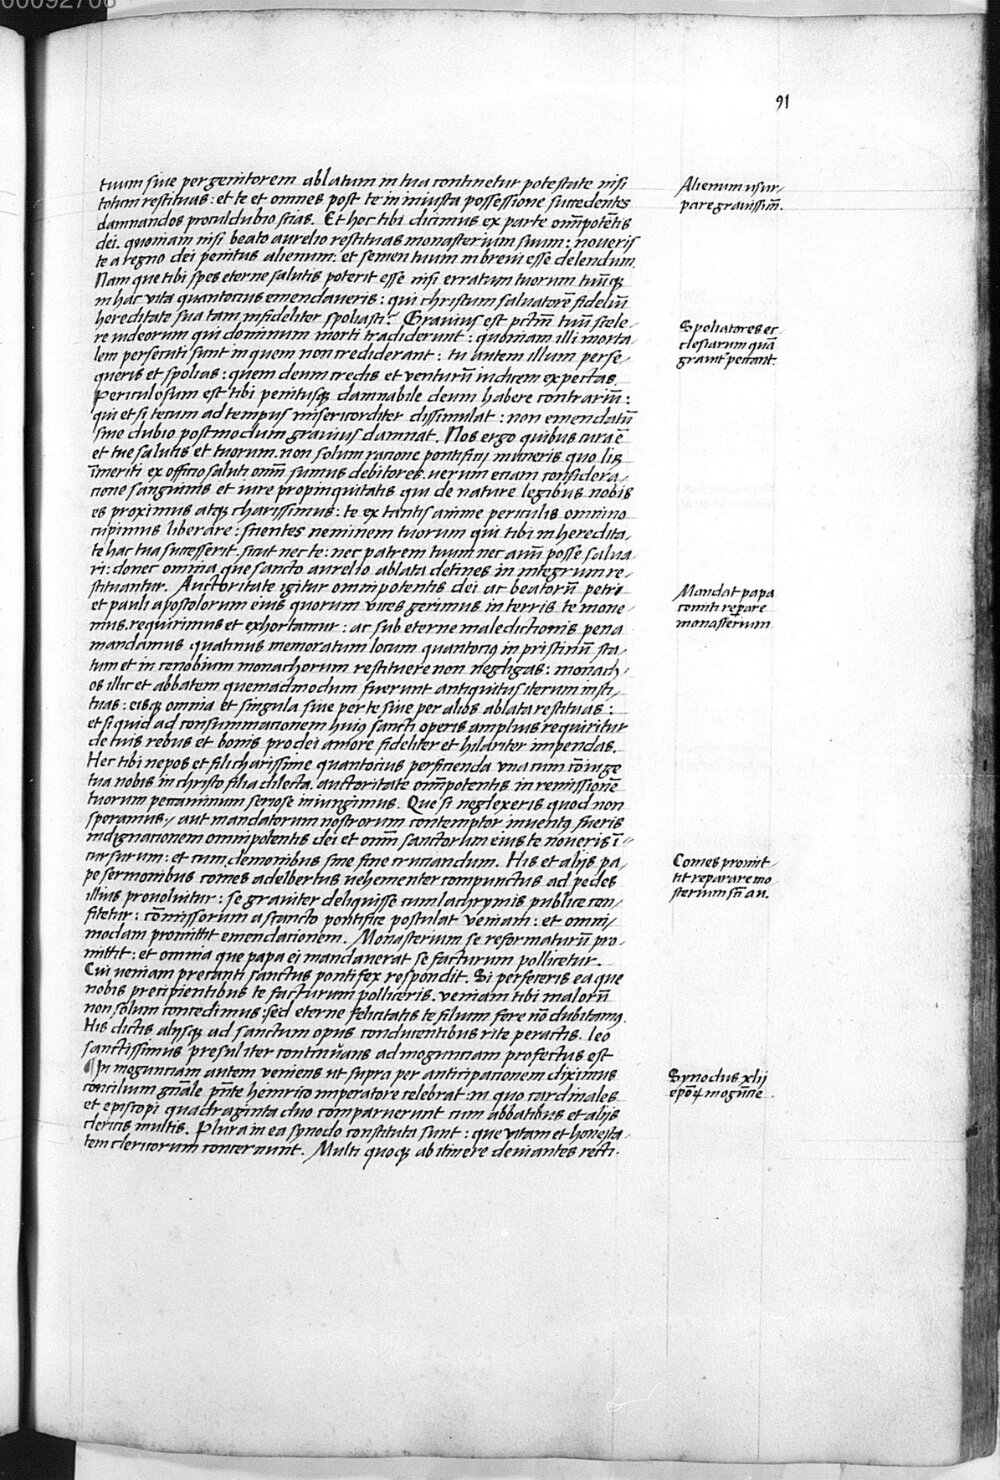 91
tuum siue per genitorem ablatum in tua continetur potestate nisi
totum restituas: et te et omnes post te in iniusta possessione succedentes
damnandos procul dubio scias. Et hoc tibi dicimus ex parte omīpotētis
dei. quoniam nisi beato aurelio restituas monasterium suum: noueris
te a regno dei penitus alienum: et semen tuum in breui esse delendum.
Nam que tibi spes eterne salutis poterit esse nisi erratum tuorum tuūqꝫ
in hac vita quantocius emendaueris: qui christum saluatorē fideliū
hereditate sua tam infideliter spoliasti? Grauius est pctm̄ tuū scele/
re iudeorum qui dominum morti tradiderunt: quoniam illi morta/
lem persecuti sunt in quem non crediderant: tu autem illum perse/
queris et spolias: quem deum credis et venturū iudicem expectas.
Periculosum est tibi penitusqꝫ damnabile deum habere contrariū:
qui et si tecum ad tempus misericorditer dissimulat: non emendatū
sine dubio postmodum grauius damnat. Nos ergo quibus cura ē
et tue salutis et tuorum. non solum racione pontificij muneris quo līꝫ
īmeriti ex officio saluti omnī sumus debitores. verum eciam considera/
cione sanguinis et iure propinquitatis qui de nature legibus nobis
es proximus atqꝫ charissimus: te ex tantis anime periculis omnino
cupimus liberare: scientes neminem tuorum qui tibi in heredita/
te hac tua successerit. sicut nec te: nec patrem tuum nec auū posse salua
ri: donec omnia que sancto aurelio ablata detines in integrum re/
stituantur. Auctoritate igitur omnipotentis dei ac beatorū petri
et pauli apostolorum eius quorum vices gerimus in terris te mone/
mus. requirimus et exhortamur: ac sub eterne maledictionis pena
mandamus quatinus memoratum locum quantocius in pristinū sta/
tum et in cenobium monachorum restituere non negligas: monach/
os illic et abbatem quemadmodum fuerunt antiquitus iterum insti/
tuas: eisqꝫ omnia et singula siue per te siue per alios ablata restituas:
et si quid ad consummacionem huiꝰ sancti operis amplius requiritur
de tuis rebus et bonis pro dei amore fideliter et hilariter impendas.
Hec tibi nepos et fili charissime quantocius perficienda vna cum cōiuge
tua nobis in christo filia dilecta. auctoritate omīpotentis in remissionē
tuorum peccaminum seriose iniungimus. Que si neglexeris quod non
speramus / aut mandatorum nostrorum contemptor inuentꝰ fueris
indignacionem omnipotentis dei et omnī sanctorum eius te noueris ī/
cursurum: et cum demonibus sine fine cruciandum. His et alijs pa/
pe sermonibus comes adelbertus vehementer compunctus ad pedes
illius prouoluitur: se grauiter deliquisse cum lachrymis publice con/
fitetur: cōmissorum a sancto pontifice postulat veniam: et omni/
modam promittit emendacionem. Monasterium se reformaturū pro/
mittit: et omnia que papa ei mandauerat se facturum pollicetur.
Cui veniam precanti sanctus pontifex respondit. Si perfeceris ea que
nobis precipientibus te facturum polliceris. veniam tibi malorū
non solum concedimus: sed eterne felicitatis te filium fore nō dubitamꝰ.
His dictis alysqꝫ ad sanctum opus conducentibus rite peractis. leo
sanctissimus presul iter continuans ad mogunciam profectus est
¶ In mogunciam autem veniens ut supra per anticipacionem diximus
concilium gn̄ale pn̄te heinrico imperatore celebrat: in quo cardinales
et episcopi quadraginta duo comparuerunt cum abbatibus et alijs
clericis multis. Plura in ea synodo constituta sunt: que vitam et honesta/
tem clericorum concernunt. Multi quoqꝫ ab itinere deuiantes recti.
Alienum usur/
pare grauissim̄.
Spoliatores ec
clesiarum quā
grauit' peccant.
Mandat papa
comiti repare
monasterium
Comes promit-
tit reparare mo
sterium sc̄ti au.
Synodus xlij
epōꝝ mogūcie.